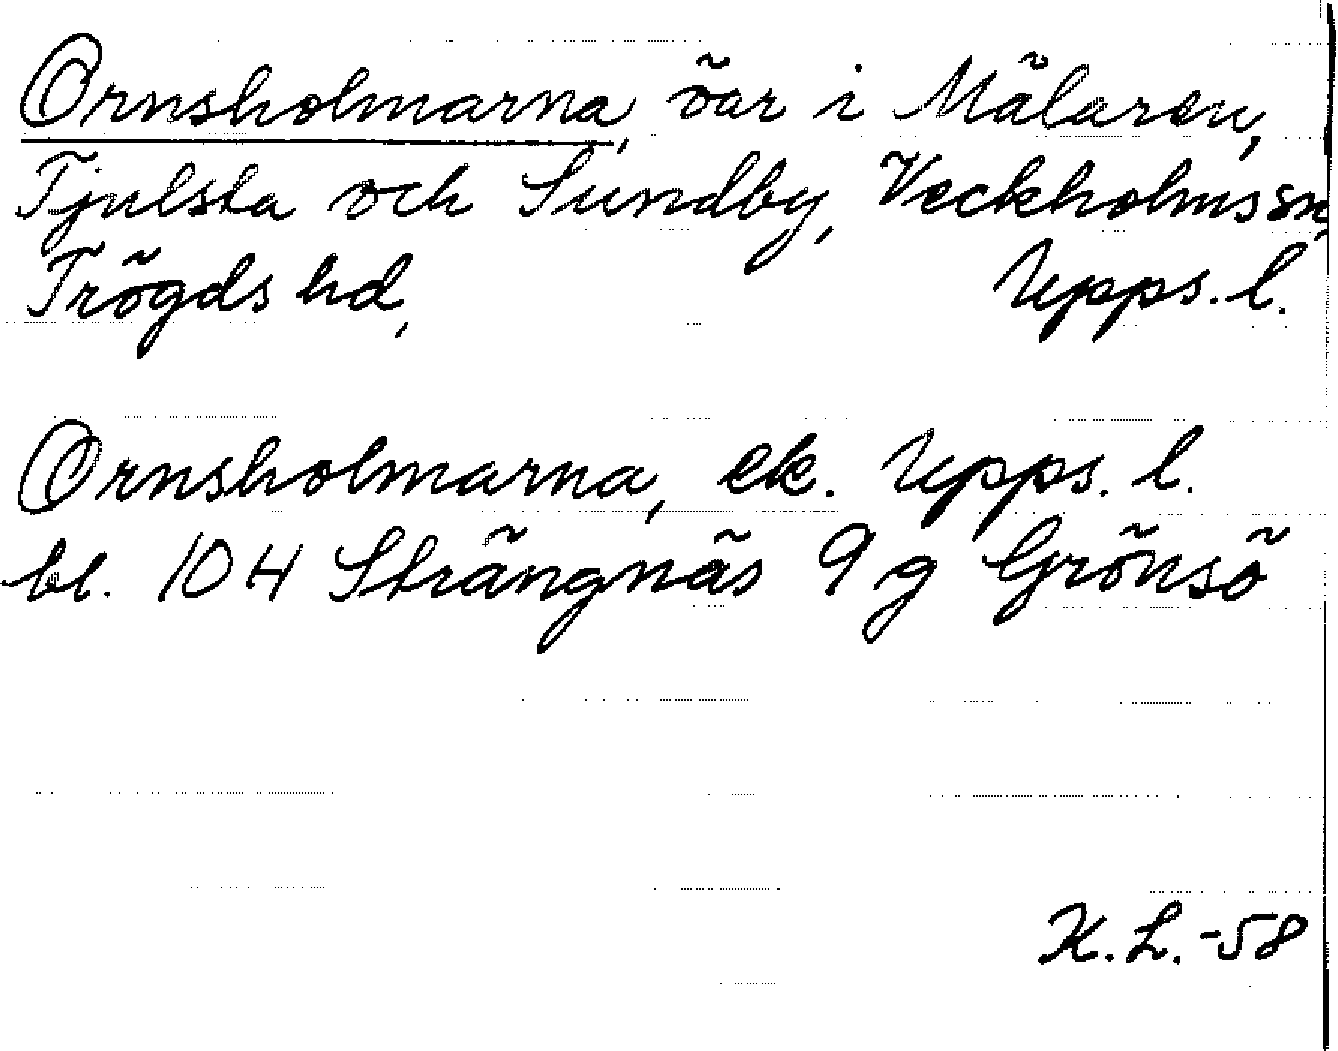 Ornsholmarna, öar i Mälaren,
Tjulsta och Sundby, Veckholms sn,
Trögds hd, Upps. l.
Ornsholmarna, ek. Upps. l.
bl. 104 Strängnäs 9 g Grönsö
K. L. -58